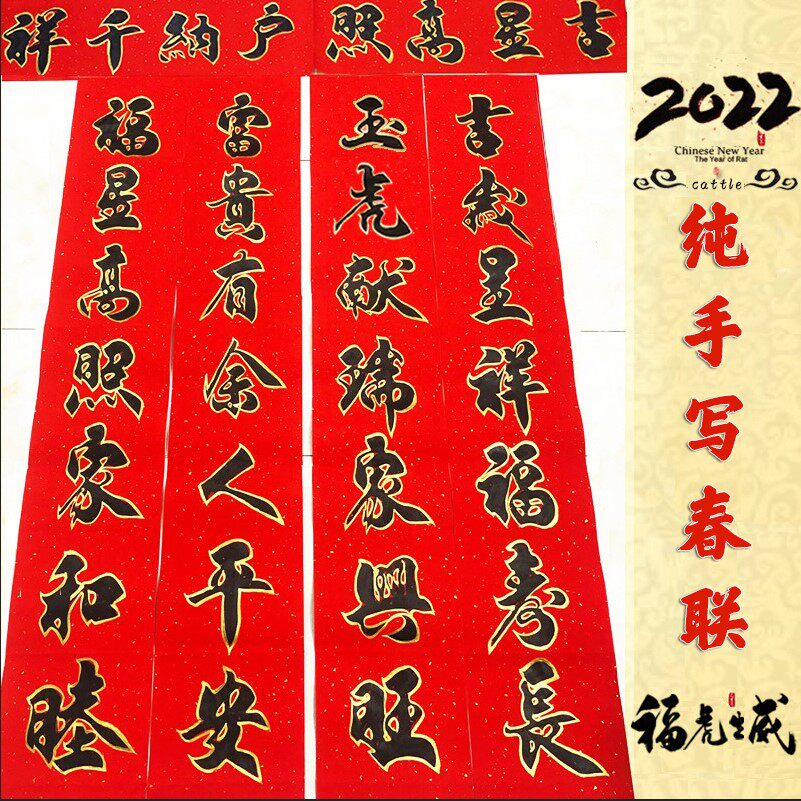 吉星高照
户納千祥
吉歲呈祥福寿長
玉虎献瑞家興旺
富貴有余人平安
福星高照家和睦
2022
Chinese New Year
The Year of Rat
cattle
纯手写春联
福虎生威